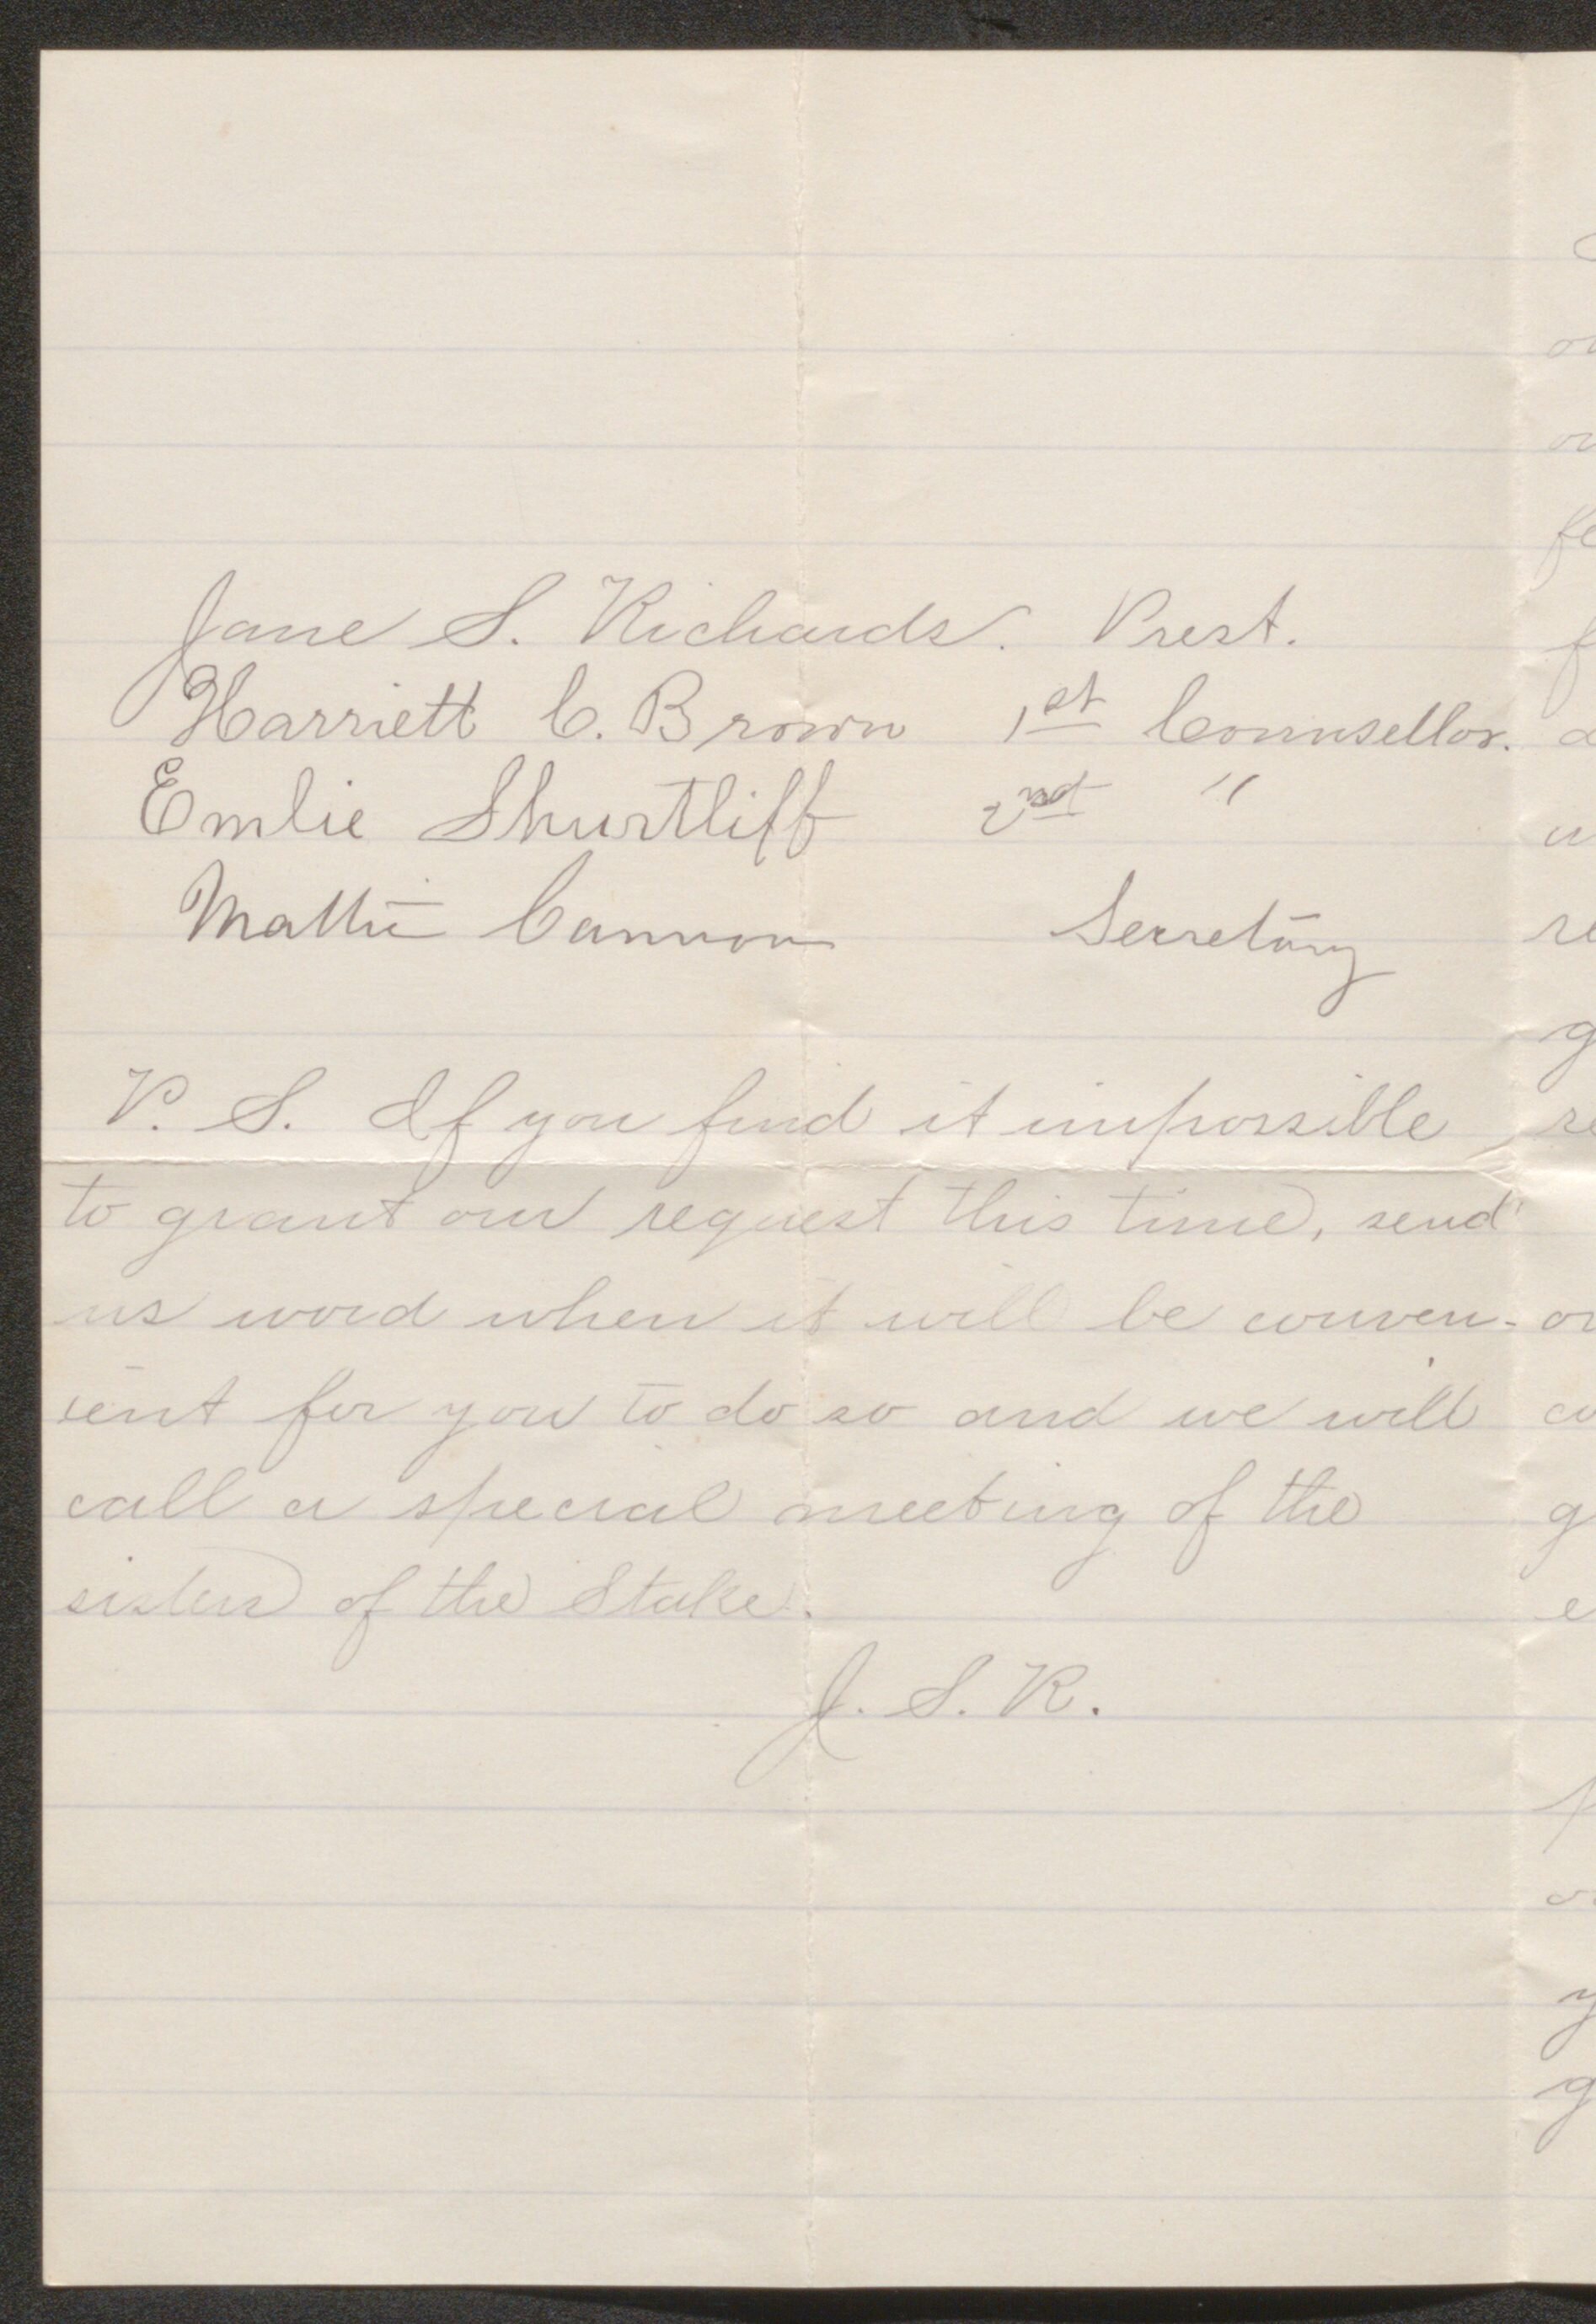 Jane S. Richards. Prest.
Harriett C. Brown 1st Counsellor.
Emlie Shurtliff 2nd "
Mattie Cannon Secretary
P. S. If you find it impossible
to grant our request this time, send
us word when it will be conven-
ient for you to do so and we will
call a special meeting of the
sisters of the Stake.
J. S. R.